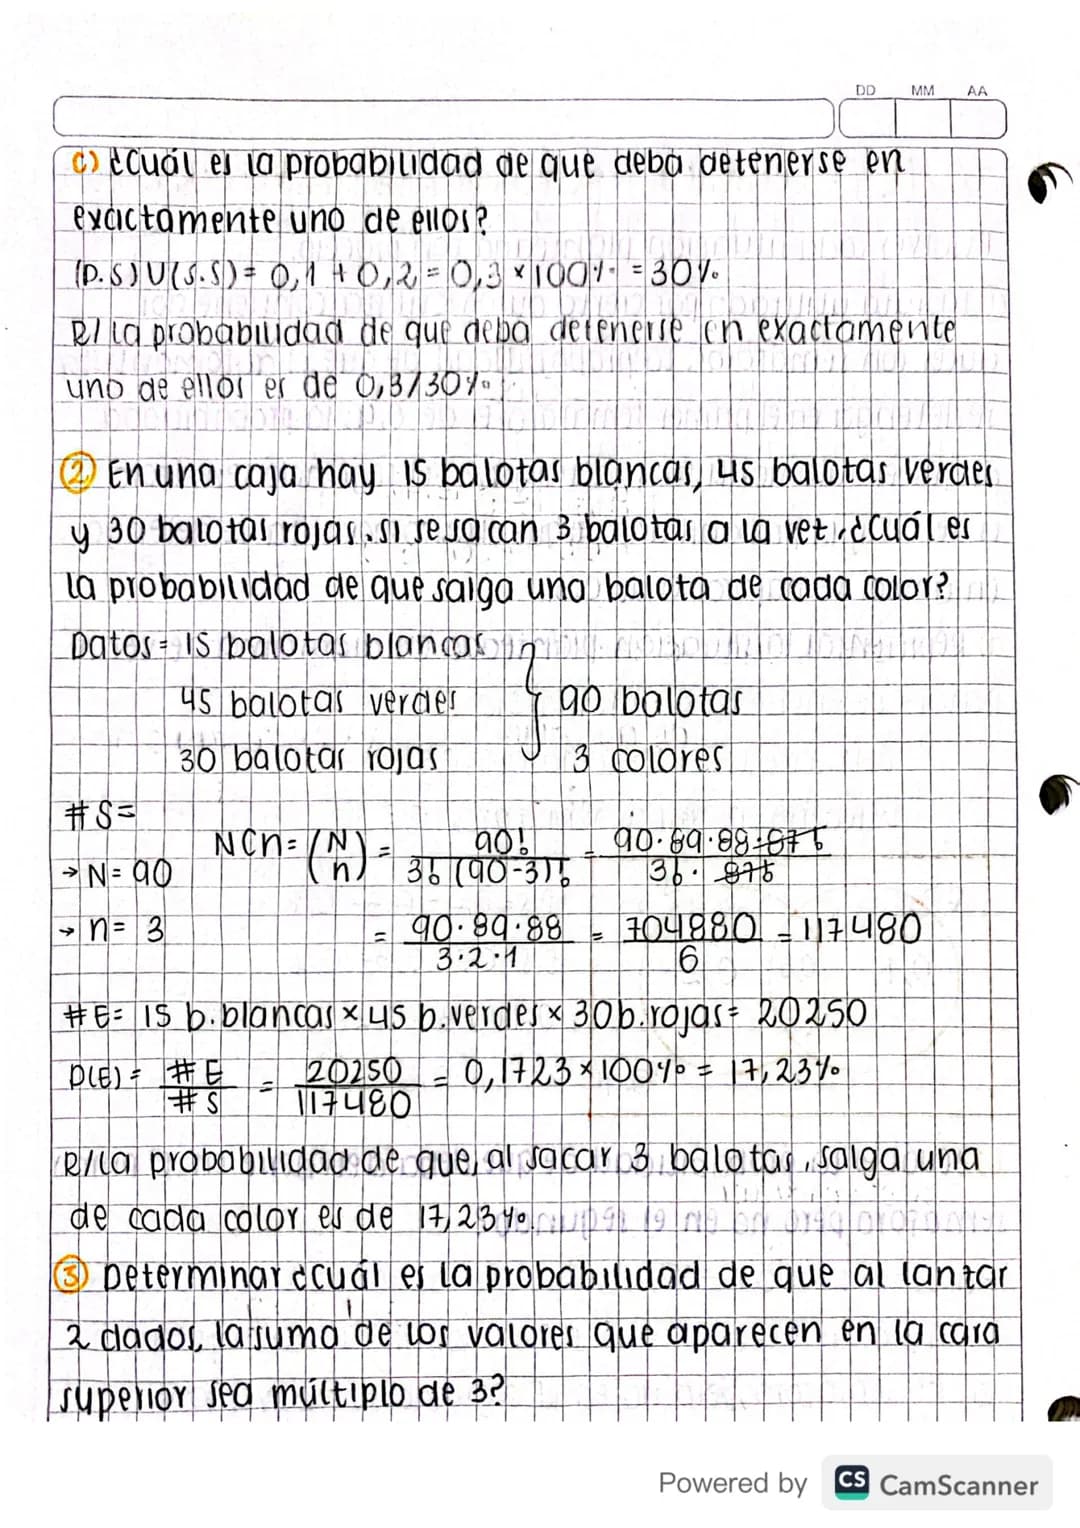 DD MM AA
c) ¿Cuál es la probabilidad de que deba detenerse en
exactamente uno de ellos?
(P.S) U (S.S) = 0,1 + 0,2 = 0,3 × 100% = 30%
R/ La probabilidad de que deba detenerse en exactamente
uno de ellos es de 0,3/30%
② En una caja hay 15 balotas blancas, 45 balotas verdes
y 30 balotas rojas. si se sacan 3 balotas a la vez, ¿cuál es
la probabilidad de que salga una balota de cada color?
Datos = 15 balotas blancas
45 balotas verdes } 90 balotas
30 balotas rojas 3 colores
#S=
NCn = (N n) = 90! / 3! (90-3)! = 90·89·88·87! / 3! · 87!
→ N = 90
→ n = 3
= 90·89·88 / 3·2·1 = 704880 / 6 = 117480
#E = 15 b.blancas × 45 b.verdes × 30 b.rojas = 20250
P(E) = #E / #S = 20250 / 117480 = 0,1723 × 100% = 17,23%
R/ La probabilidad de que, al sacar 3 balotas, salga una
de cada color es de 17,23%
③ Determinar ¿cuál es la probabilidad de que al lanzar
2 dados, la suma de los valores que aparecen en la cara
superior sea múltiplo de 3?
Powered by CS CamScanner